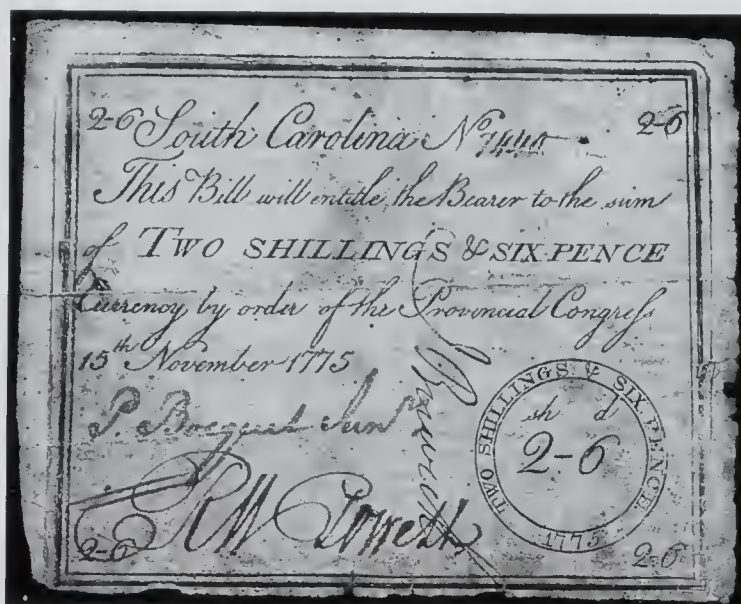 2-6 South Carolina No. 7440 2-6
This Bill will entitle the Bearer to the sum
of TWO SHILLINGS & SIX PENCE
Currency by order of the Provincial Congress
15th November 1775
P. Bocquet Junr
TWO SHILLINGS & SIX PENCE
sh d
2-6
1775
RW Powell
2-6 2-6